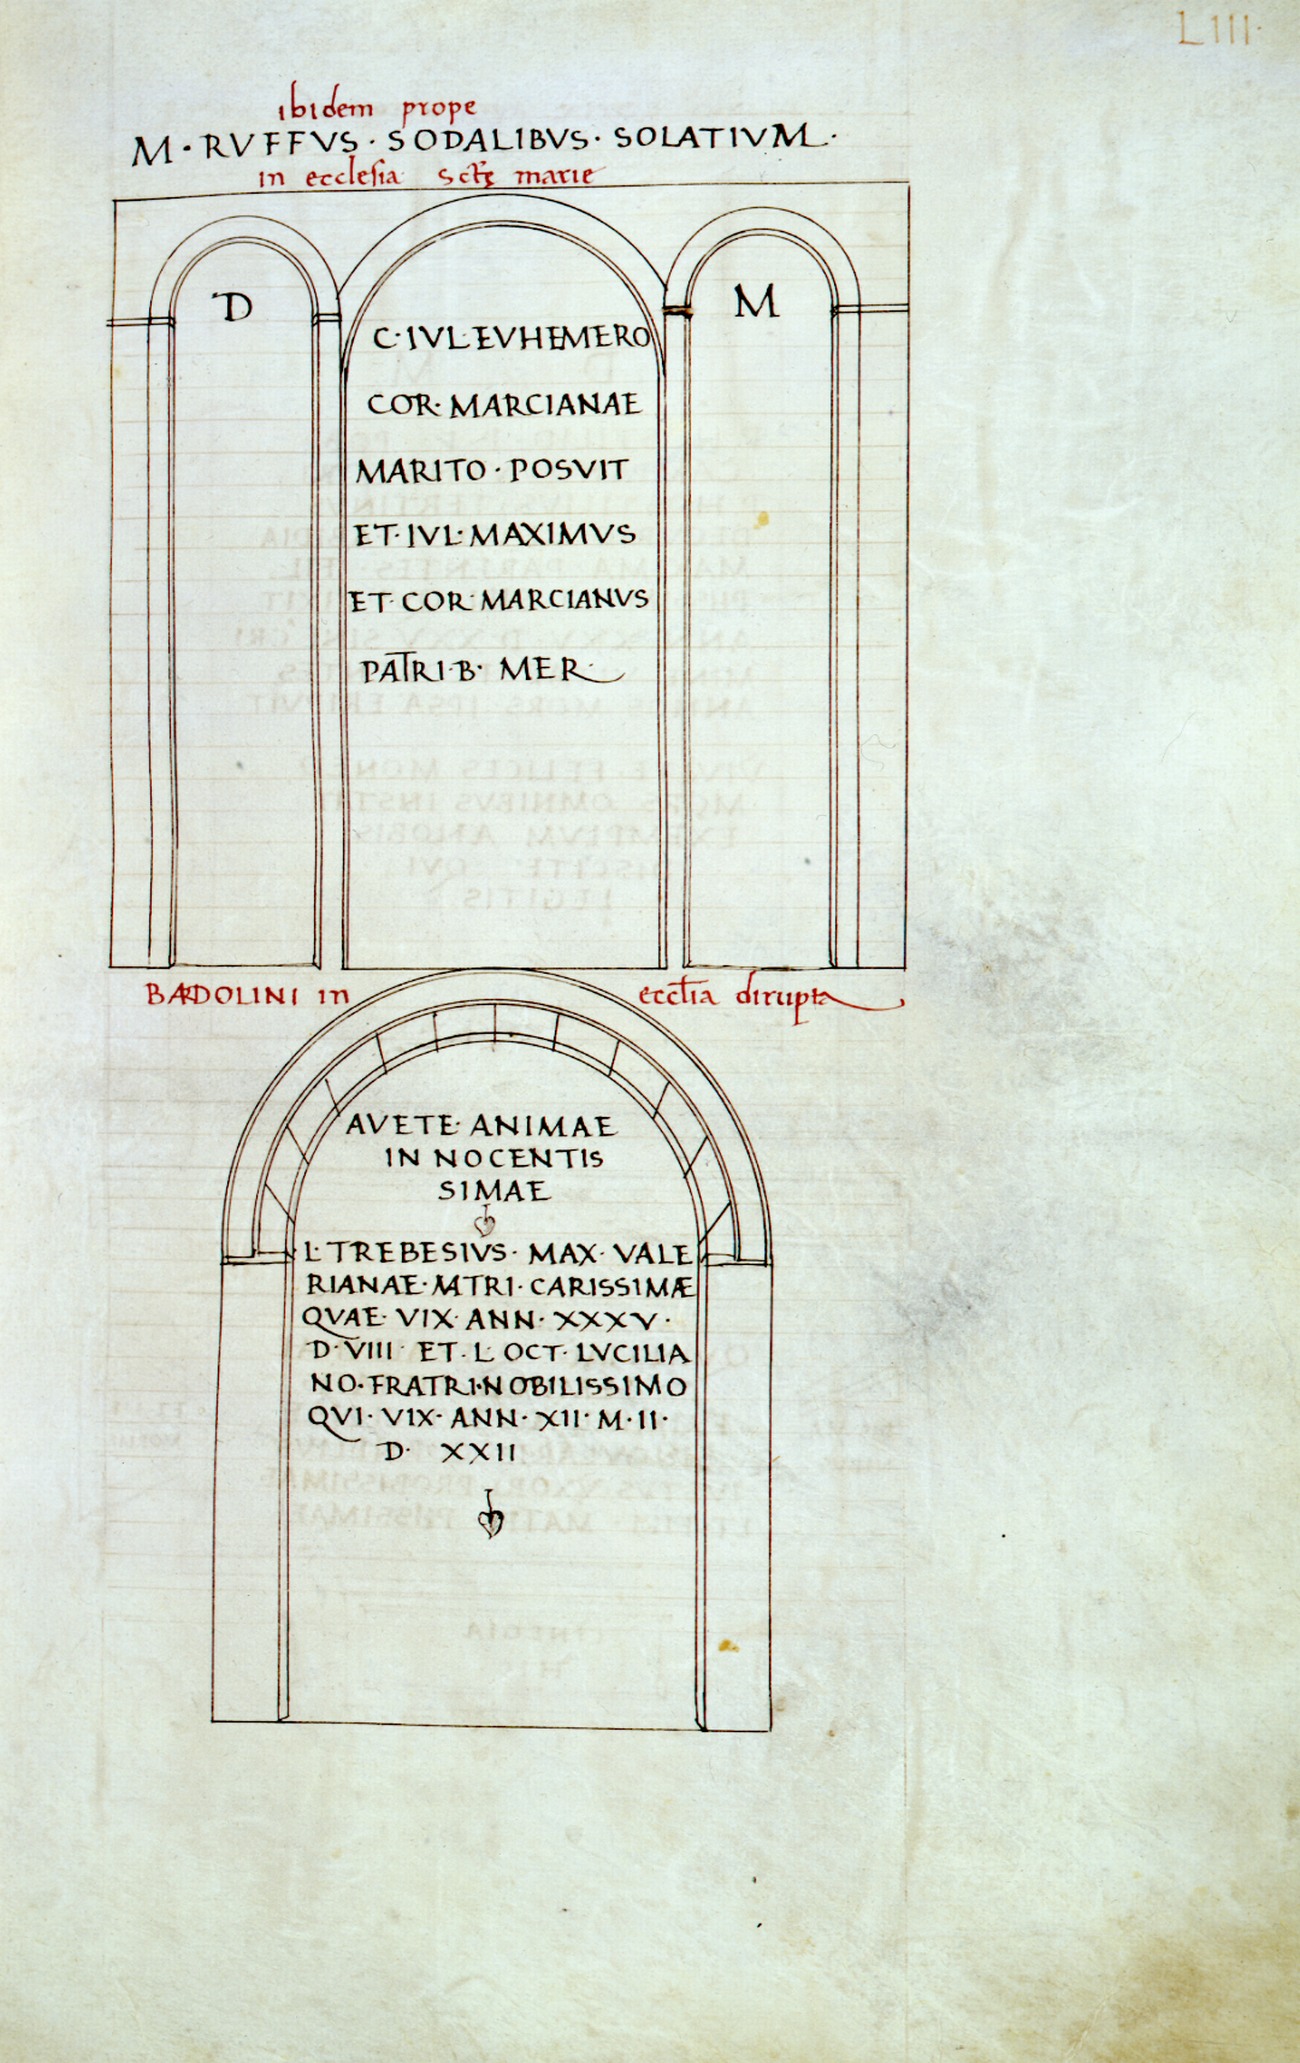 LIII·
ibidem prope
M · RVFFVS · SODALIBVS · SOLATIVM ·
in ecclesia Sctę marie
D M
C·IVL·EVHEMERO
COR· MARCIANAE
MARITO · POSVIT
ET· IVL· MAXIMVS
ET· COR· MARCIANVS
PATRI·B· MER·
BADOLINI in ecclia dirupta
AVETE· ANIMAE
IN NOCENTIS
SIMAE
L· TREBESIVS · MAX · VALE
RIANAE · MTRI · CARISSIMÆ
QVAE· VIX· ANN · XXXV ·
D· VIII· ET· L· OCT· LVCILIA
NO·FRATRI·NOBILISSIMO
QVI· VIX· ANN· XII· M· II·
D· XXII